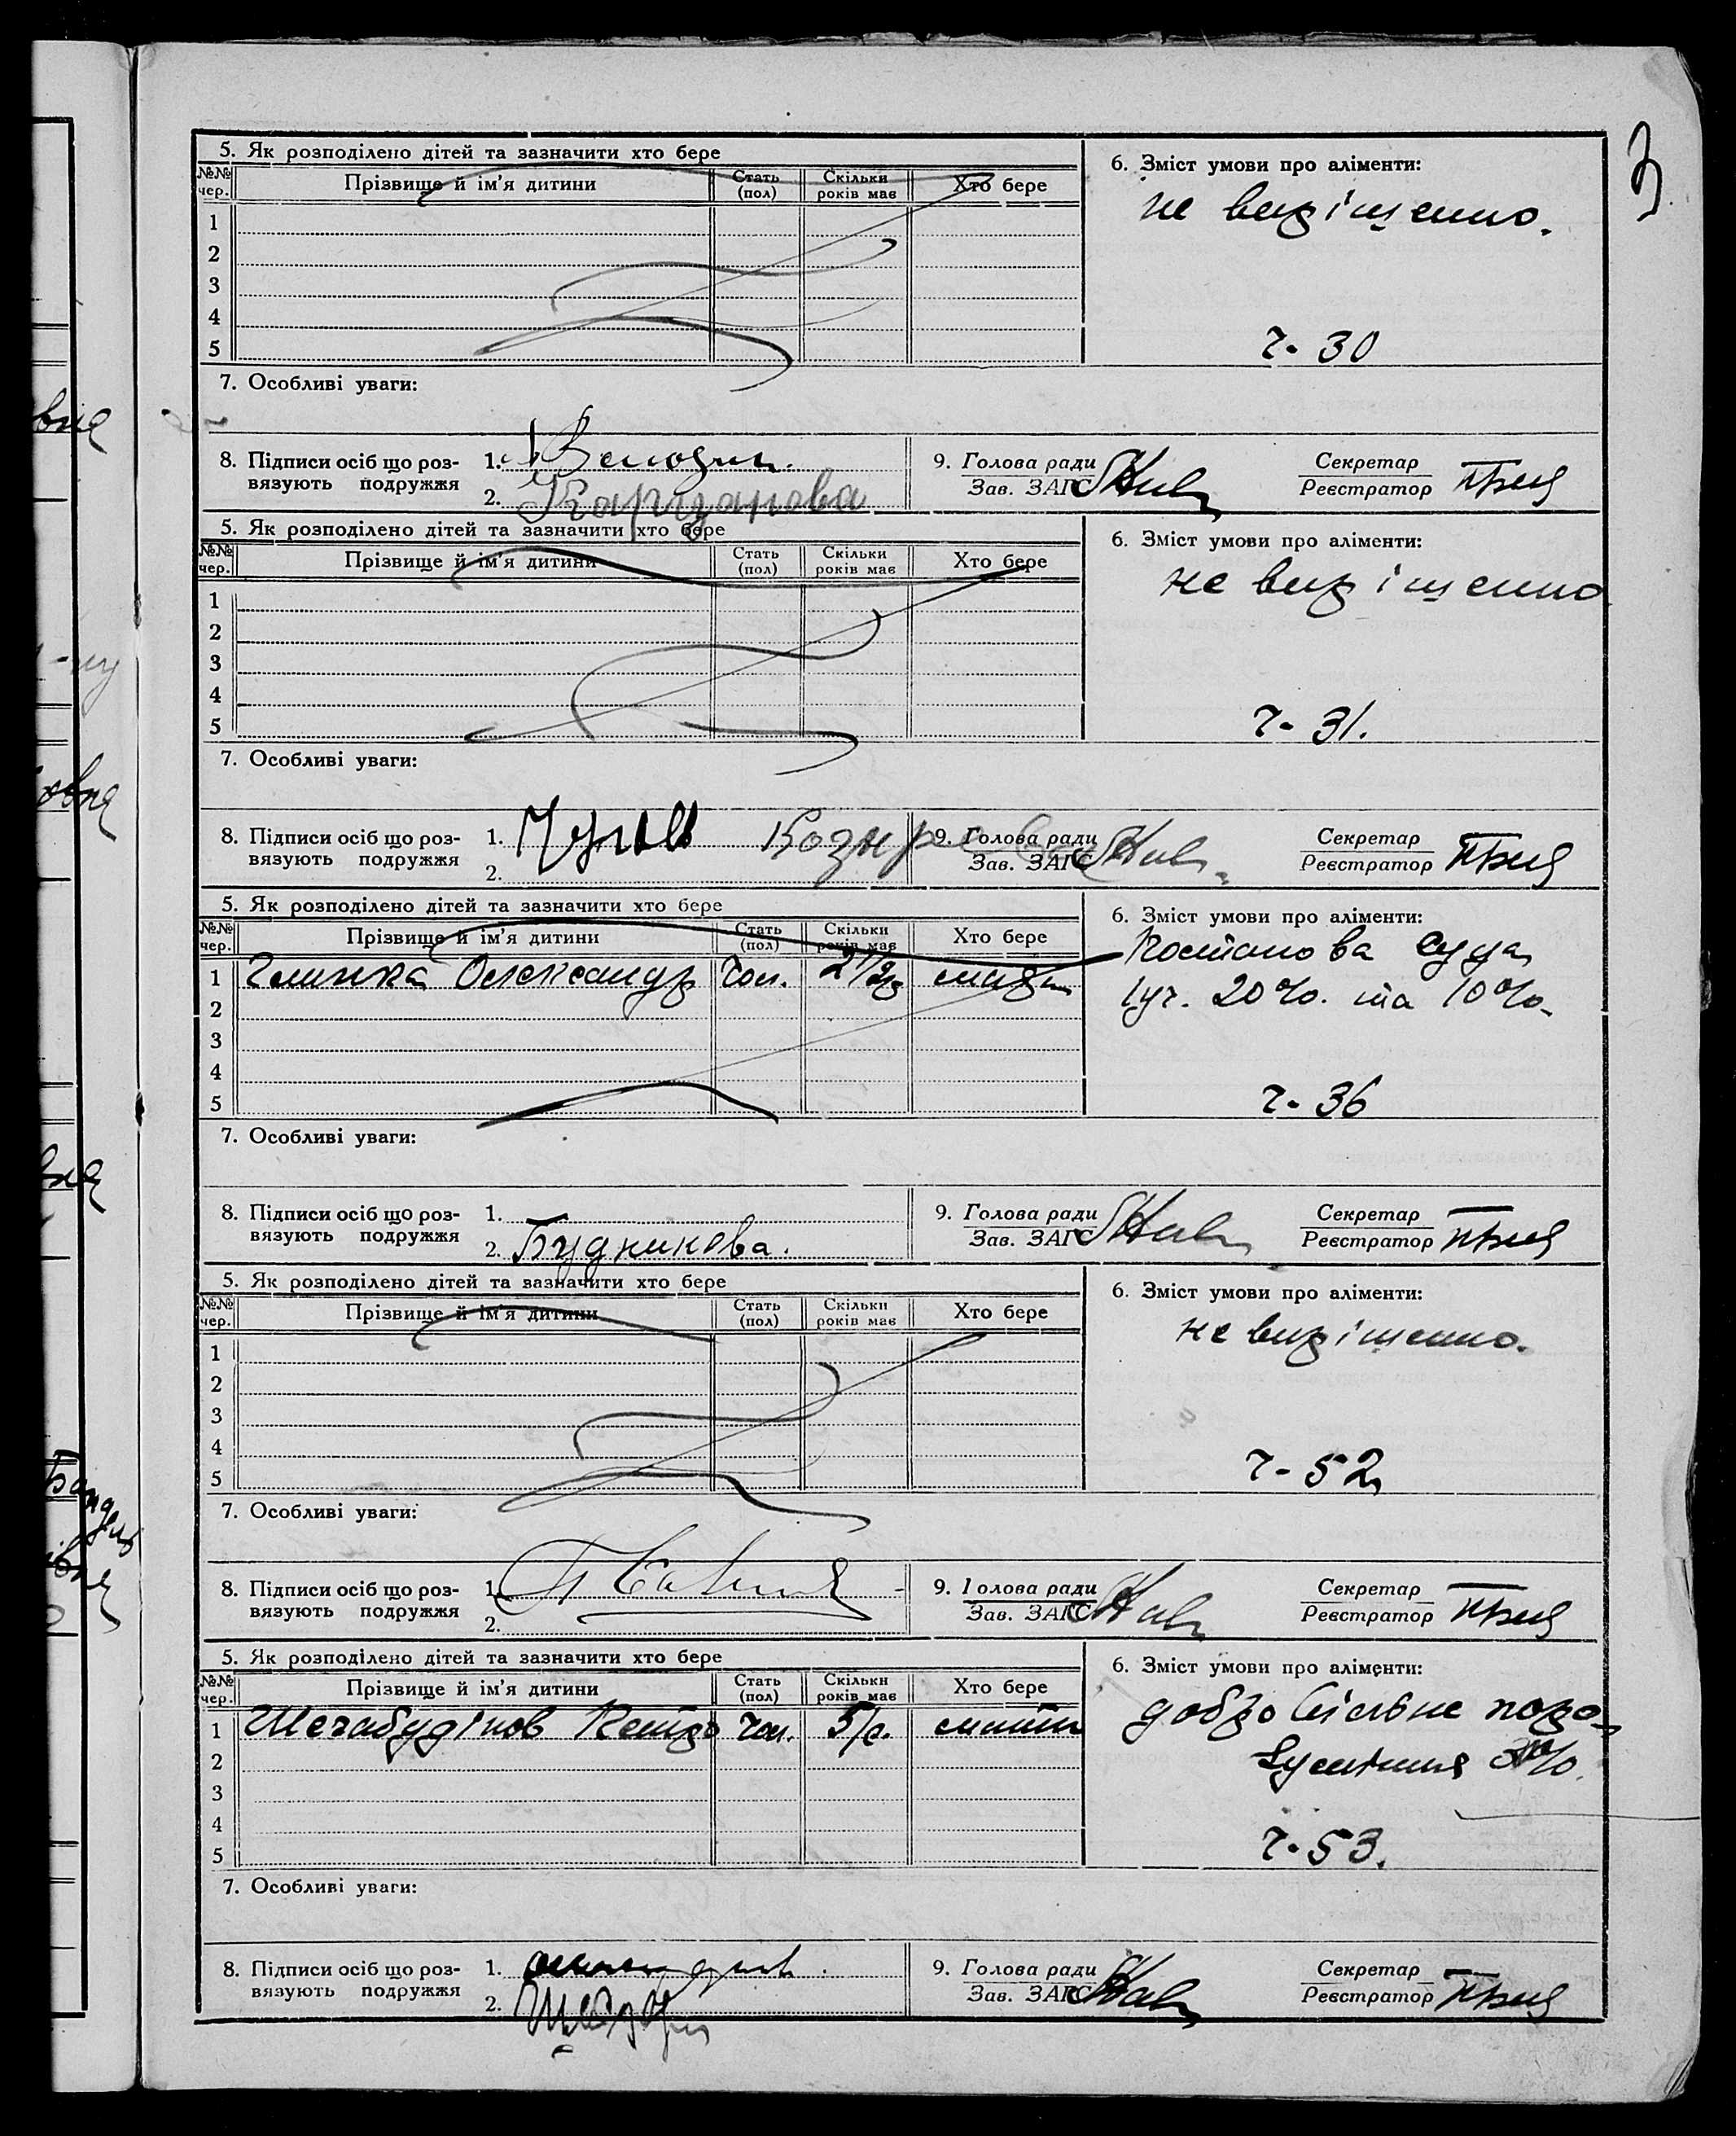 3
5. Як розподілено дітей та зазначити хто бере
6. Зміст умови про аліменти:
№№ чер. Прізвище й ім'я дитини Стать (пол) Скільки років має Хто бере
не вирішенно.
1
2
3
4
5
ч- 30
7. Особливі уваги:
8. Підписи осіб що роз-
вязують подружжя
1.
2.
9. Голова ради
Зав. ЗАГС
Секретар
Реєстратор
5. Як розподілено дітей та зазначити хто бере
6. Зміст умови про аліменти:
№№ чер. Прізвище й ім'я дитини Стать (пол) Скільки років має Хто бере
не вирішенно
1
2
3
4
5
ч- 31.
7. Особливі уваги:
8. Підписи осіб що роз-
вязують подружжя
1.
2.
9. Голова ради
Зав. ЗАГС
Секретар
Реєстратор
5. Як розподілено дітей та зазначити хто бере
6. Зміст умови про аліменти:
№№ чер. Прізвище й ім'я дитини Стать (пол) Скільки років має Хто бере
Постанова суда
1 Глинка Олександр чол. 2 1/2 р
1 уч. 20%. та 10%.
2
3
4
5
ч- 36
7. Особливі уваги:
8. Підписи осіб що роз-
вязують подружжя
1.
2. Будникова.
9. Голова ради
Зав. ЗАГС
Секретар
Реєстратор
5. Як розподілено дітей та зазначити хто бере
6. Зміст умови про аліменти:
№№ чер. Прізвище й ім'я дитини Стать (пол) Скільки років має Хто бере
не вирішенно.
1
2
3
4
5
ч- 52
7. Особливі уваги:
8. Підписи осіб що роз-
вязують подружжя
1.
2.
9. Голова ради
Зав. ЗАГС
Секретар
Реєстратор
5. Як розподілено дітей та зазначити хто бере
6. Зміст умови про аліменти:
№№ чер. Прізвище й ім'я дитини Стать (пол) Скільки років має Хто бере
добровільне
1 Шегабудінов Петро чол. 5/р.
2
3
4
5
ч- 53.
7. Особливі уваги:
8. Підписи осіб що роз-
вязують подружжя
1.
2.
9. Голова ради
Зав. ЗАГС
Секретар
Реєстратор